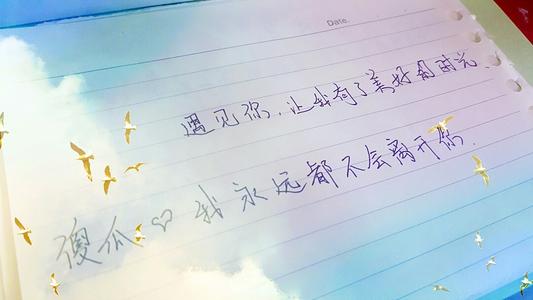 Date.
遇见你,让我有了美好的时光、
傻瓜♡我永远都不会离开你.